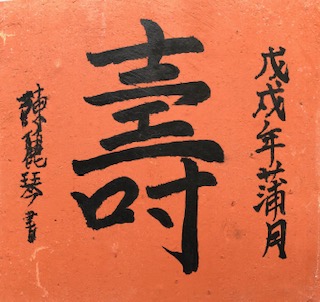 戊戌年蒲月
壽
陳麗琴書